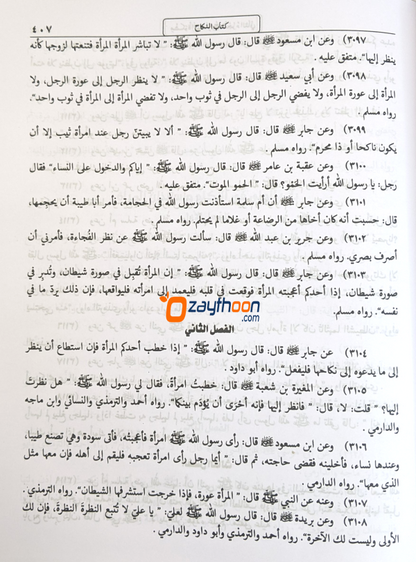 كتاب النكاح
٤٠٧
٣٠٩٧) وعن ابن مسعود ﷺ قال: قال رسول الله ﷺ: " لا تباشر المرأة المرأة فتنعتها لزوجها كأنه
ينظر إليها". متفق عليه.
٣٠٩٨) وعن أبي سعيد ﷺ قال: قال رسول الله ﷺ: " لا ينظر الرجل إلى عورة الرجل، ولا
المرأة إلى عورة المرأة، ولا يفضي الرجل إلى الرجل في ثوب واحد، ولا تفضي المرأة إلى المرأة في ثوب واحد".
رواه مسلم .
٣٠٩٩) وعن جابر ﷺ قال: قال رسول الله ﷺ: " ألا لا يبيتنّ رجل عند امرأة ثيب إلا أن
يكون ناكحا أو ذا محرم". رواه مسلم .
٣١٠٠) وعن عقبة بن عامر ﷺ قال: قال رسول الله ﷺ: " إياكم والدخول على النساء" فقال
رجل: يا رسول الله أرأيت الحَمْو؟ قال: " الحمو الموت". متفق عليه .
٣١٠١) وعن جابر ﷺ أن أم سلمة استأذنت رسول الله ﷺ في الحجامة، فأمر أبا طيبة أن يحجمها،
قال: حسبت أنه كان أخاها من الرضاعة أو غلاما لم يحتلم. رواه مسلم.
٣١٠٢) وعن جرير بن عبد الله ﷺ قال: سألت رسول الله ﷺ عن نظر الفُجاءة، فأمرني أن
أصرف بصري. رواه مسلم .
٣١٠٣) وعن جابر ﷺ قال: قال رسول الله ﷺ: " إن المرأة تُقبل في صورة شيطان، وتُدبر في
صورة شيطان، إذا أحدكم أعجبته المرأة فوقعت في قلبه فليعمد إلى امرأته فليواقعها، فإن ذلك يردّ ما في
نفسه". رواه مسلم.
Ozaythoon
.com
الفصل الثاني
٣١٠٤) عن جابر ﷺ قال: قال رسول الله ﷺ: " إذا خطب أحدكم المرأة فإن استطاع أن ينظر
إلى ما يدعوه إلى نكاحها فليفعل". رواه أبو داود .
٣١٠٥) وعن المغيرة بن شعبة ﷺ قال: خطبتُ امرأة، فقال لي رسول الله ﷺ: " هل نظرتَ
إليها؟ " قلت: لا، قال: " فانظر إليها فإنه أحْرَى أن يُؤدَم بينكما". رواه أحمد والترمذي والنسائي وابن ماجه
والدارمي .
٣١٠٦) وعن ابن مسعود ﷺ قال: رأى رسول الله ﷺ امرأة فأعجبتْه، فأتى سودة وهي تصنع طيبا،
وعندها نساء، فأخلينه فقضى حاجته، ثم قال: " أيما رجل رأى امرأة تعجبه فليقم إلى أهله فإن معها مثل
الذي معها". رواه الدارمي .
٣١٠٧) وعنه عن النبي ﷺ قال: " المرأة عورة، فإذا خرجت استشرفها الشيطان". رواه الترمذي.
٣١٠٨) وعن بريدة ﷺ قال: قال رسول الله ﷺ لعلي: " يا علي لا تُتبع النظرةَ النظرةَ، فإن لك
الأولى وليست لك الآخرة". رواه أحمد والترمذي وأبو داود والدارمي .